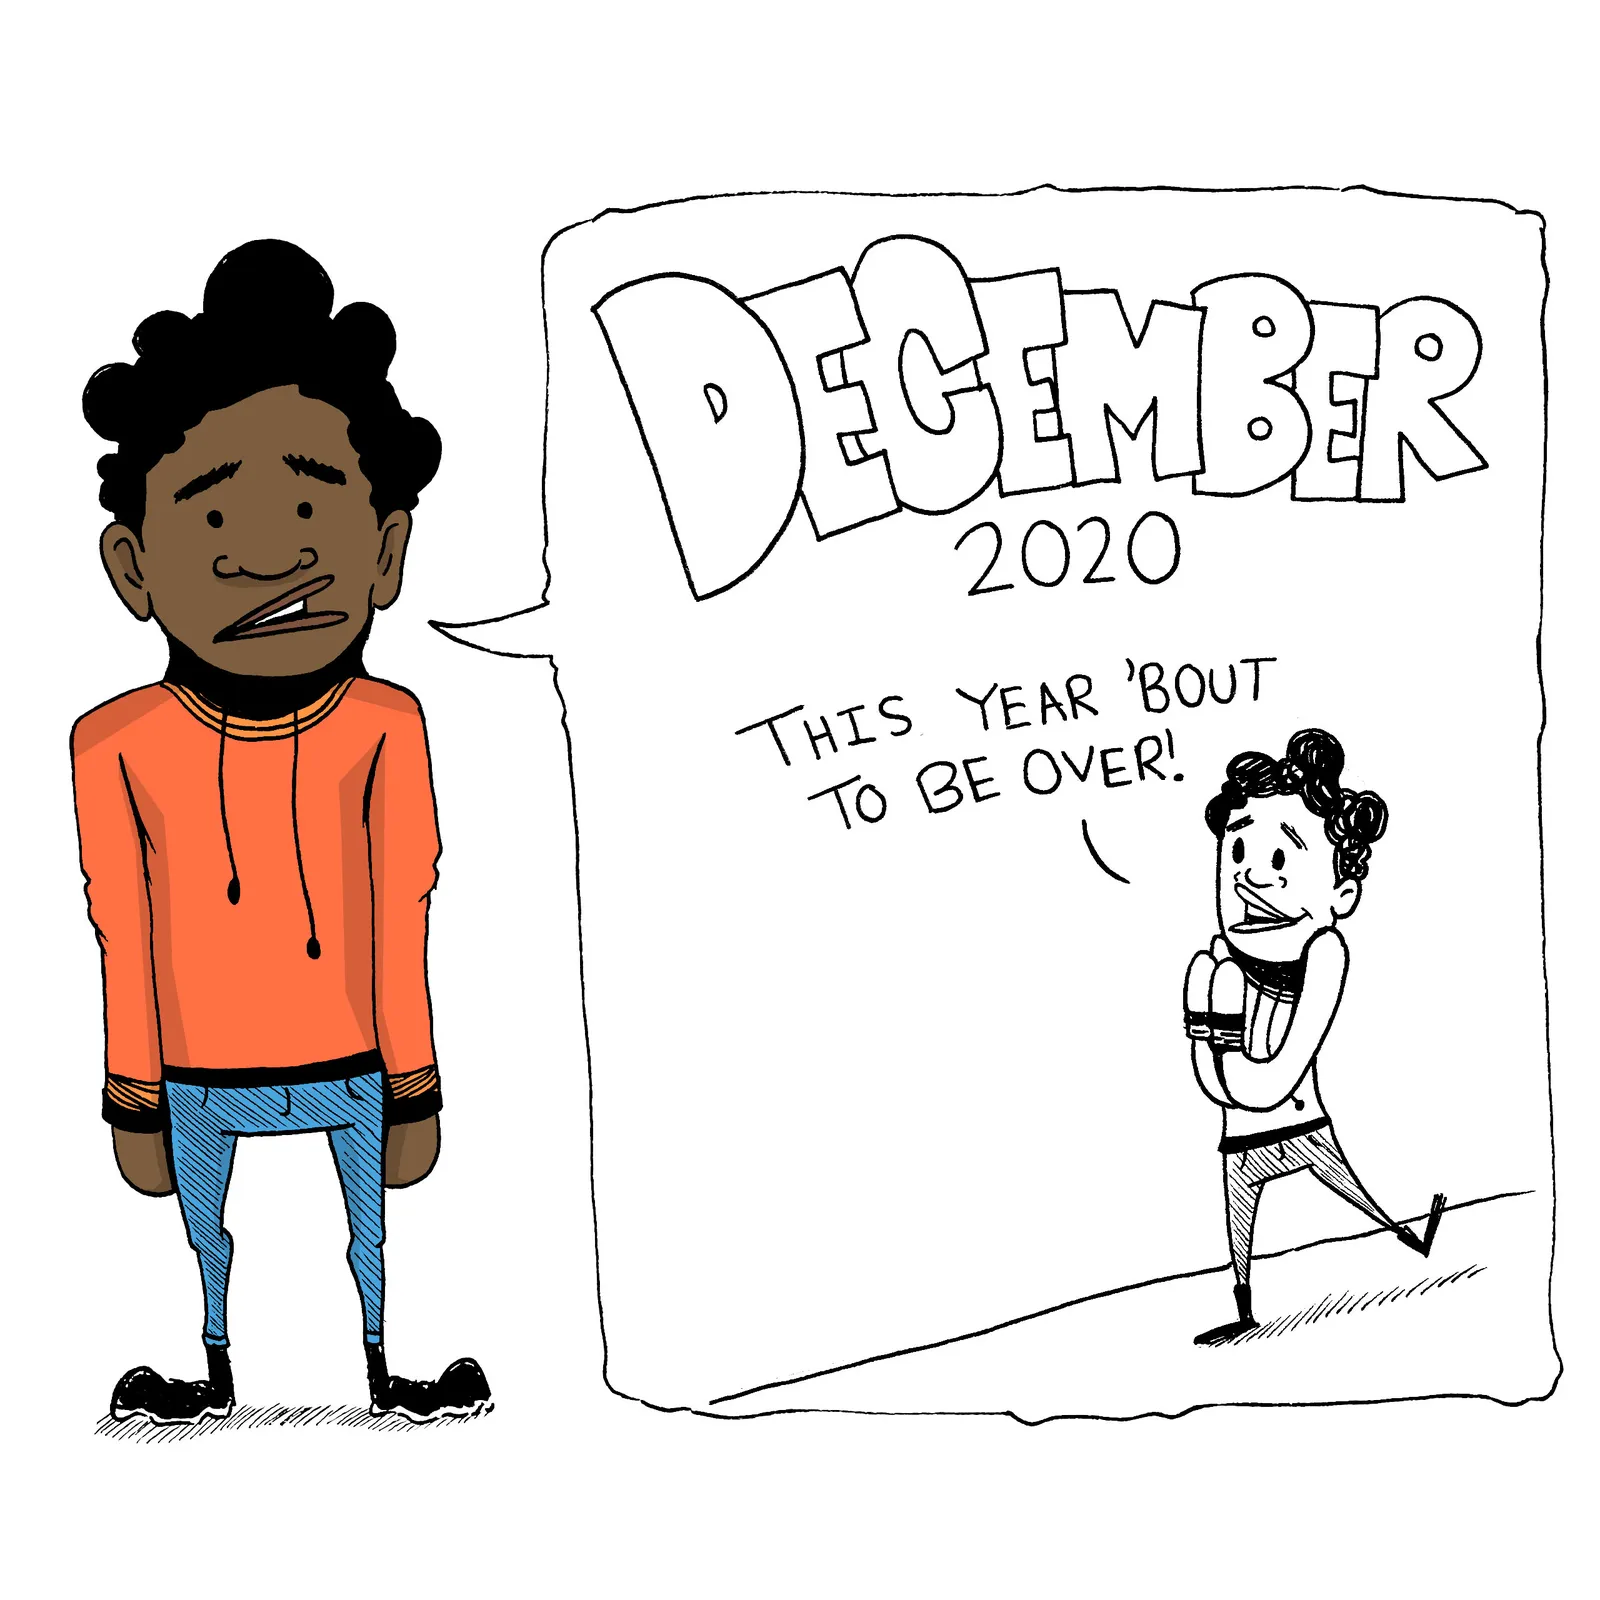 DECEMBER
2020
THIS YEAR 'BOUT
TO BE OVER!